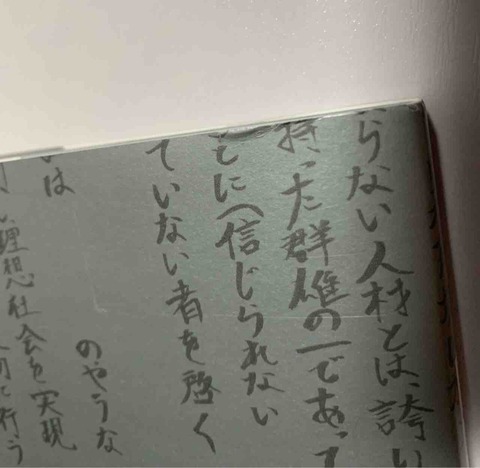 らない人材とは、誇り
持った群雄の一であって
もに(信じられない
ていない者を啓く
は　のやうな
理想社会を実現
行う